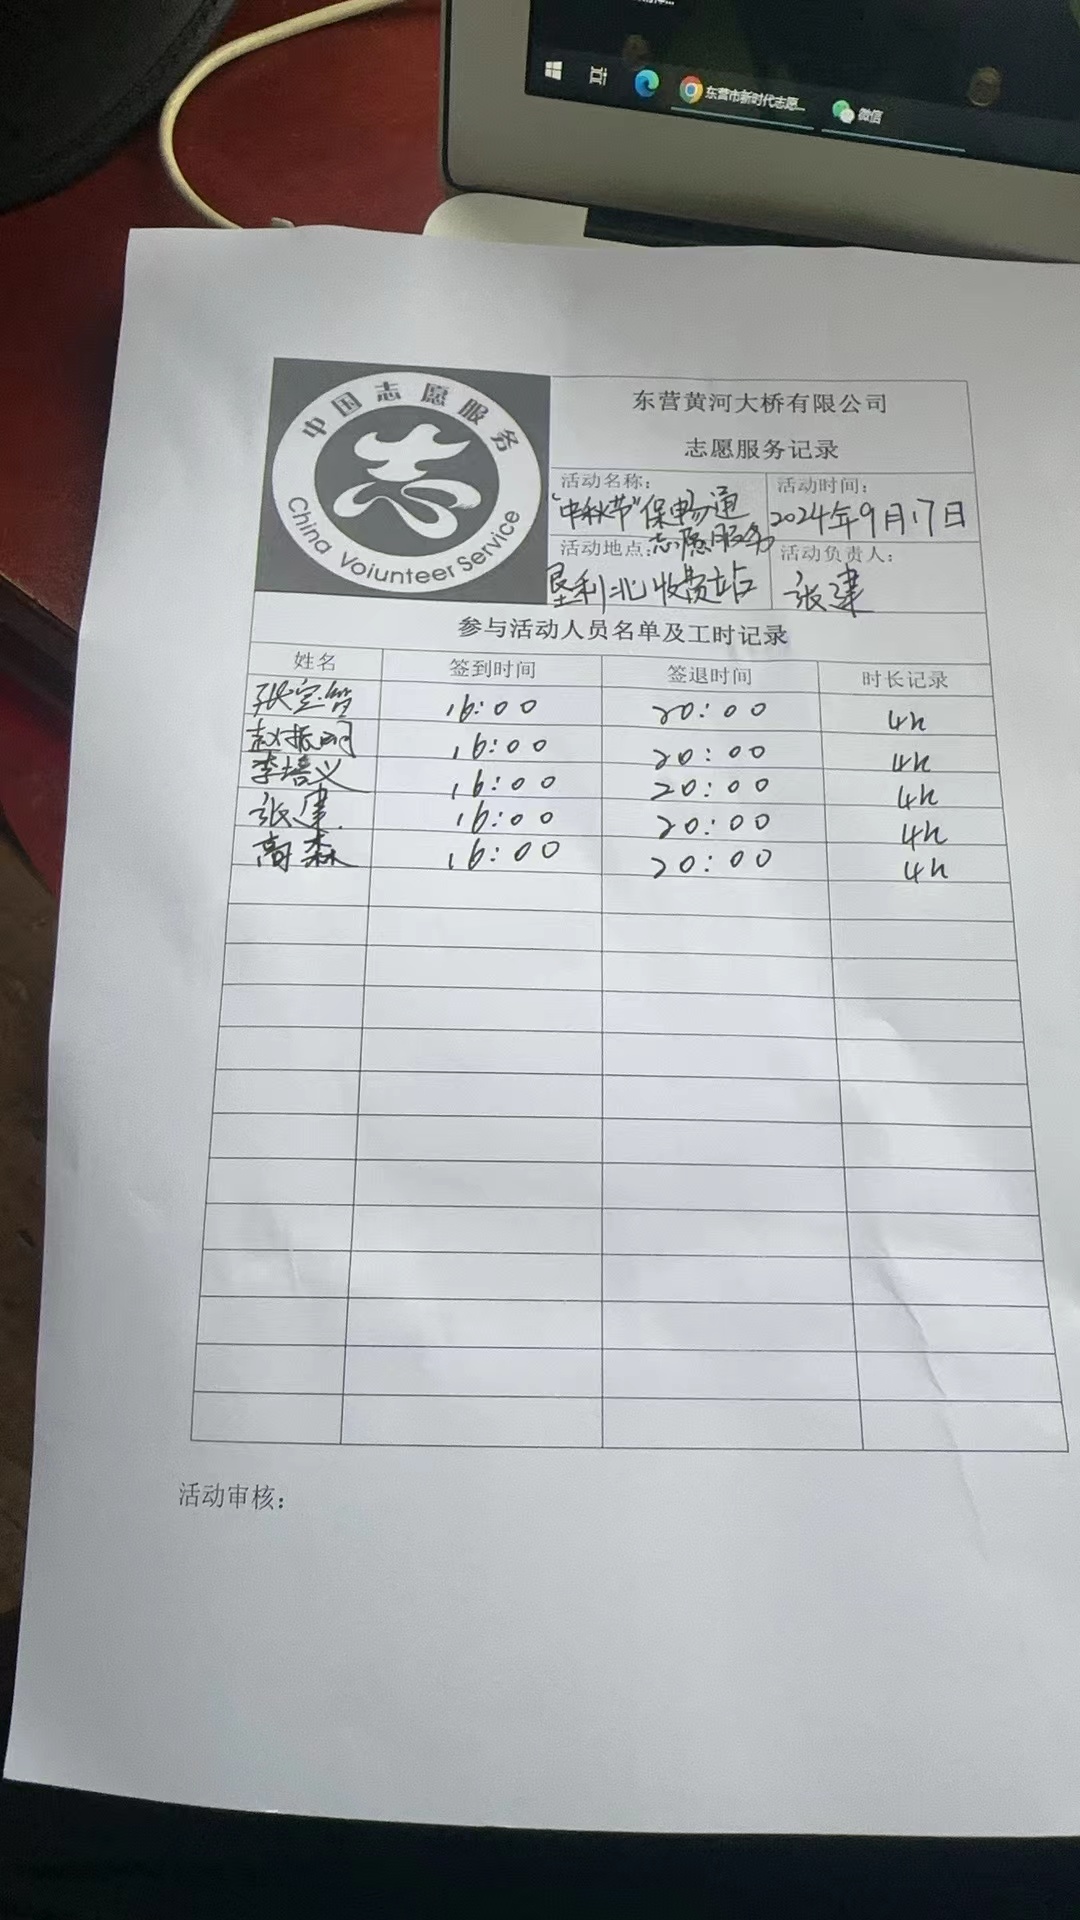 东营市新时代志愿...
微信
中国志愿服务
China Voiunteer Service
东营黄河大桥有限公司
志愿服务记录
活动名称：
活动时间：
"中秋节"保畅通
志愿服务
2024年9月17日
活动地点：
活动负责人：
垦利北收费站
张建
参与活动人员名单及工时记录
姓名 签到时间 签退时间 时长记录
张宝 16:00 20:00 4h
赵振明 16:00 20:00 4h
李培义 16:00 20:00 4h
张建 16:00 20:00 4h
高森 16:00 20:00 4h
活动审核：